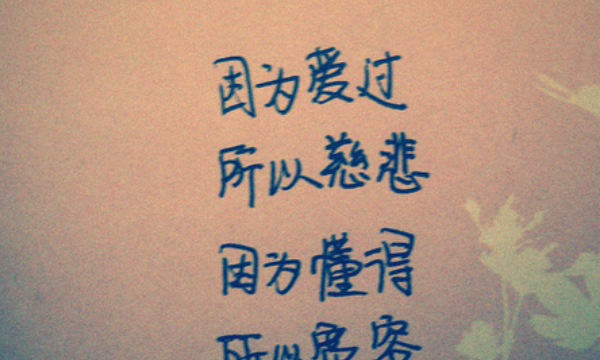 因为爱过
所以慈悲
因为懂得
所以宽容